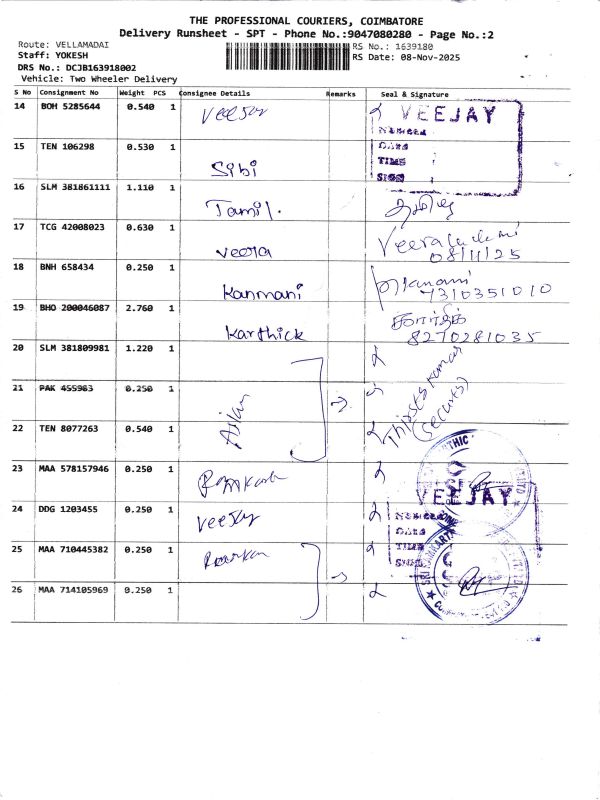 THE PROFESSIONAL COURIERS, COIMBATORE
Delivery Runsheet - SPT - Phone No.:9047080280 - Page No.:2
Route: VELLAMADAI
RS No.: 1639180
Staff: YOKESH
RS Date: 08-Nov-2025
DRS No.: DCJB163918002
Vehicle: Two Wheeler Delivery
S No Consignment No Weight PCS Consignee Details Remarks Seal & Signature
14 BOH 5285644 0.540 1 VEEJAY
DATE
TIME
SIGN
15 TEN 106298 0.530 1 Sibi
16 SLM 381861111 1.110 1 Tamil.
17 TCG 42008023 0.630 1 Veera
08/11/25
18 BNH 658434 0.250 1 Kanmani
7310351010
19 BHO 200046087 2.760 1 Karthick கார்த்திக்
8270281035
20 SLM 381809981 1.220 1
21 PAK 455983 0.250 1
22 TEN 8077263 0.540 1
(Security)
23 MAA 578157946 0.250 1
24 DDG 1203455 0.250 1 VEEJAY
DATE
TIME
25 MAA 710445382 0.250 1
26 MAA 714105969 0.250 1